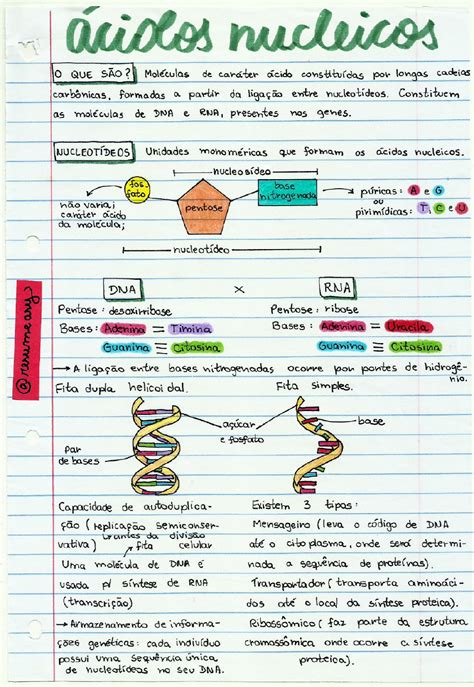 ácidos nucleicos
O QUE SÃO? Moléculas de caráter ácido constituídas por longas cadeias
carbônicas, formadas a partir da ligação entre nucleotídeos. Constituem
as moléculas de DNA e RNA, presentes nos genes.
NUCLEOTÍDEOS Unidades monoméricas que formam os ácidos nucleicos.
nucleosídeo
fos-
fato
pentose
base
nitrogenada
não varia;
caráter ácido
da molécula;
púricas: A e G
ou
pirimídicas: T, C e U
nucleotídeo
DNA x RNA
Pentose: desoxirribose
Bases: Adenina = Timina
Guanina ≡ Citosina
Pentose: ribose
Bases: Adenina = Uracila
Guanina ≡ Citosina
→ A ligação entre bases nitrogenadas ocorre por pontes de hidrogê-
nio.
Fita dupla helicoidal.
Fita simples.
açúcar
e fosfato
base
par
de bases
Capacidade de autoduplica-
ção (replicação semiconser-
vativa) durante a divisão
celular
↗ fita
Uma molécula de DNA é
usada p/ síntese de RNA
(transcrição)
→ Armazenamento de informa-
ções genéticas: cada indivíduo
possui uma sequência única
de nucleotídeos no seu DNA.
Existem 3 tipos:
Mensageiro (leva o código de DNA
até o citoplasma, onde será determi-
nada a sequência de proteínas).
Transportador (transporta aminoáci-
dos até o local da síntese proteica).
Ribossômico (faz parte da estrutura
cromossômica onde ocorre a síntese
proteica).
@resumeary